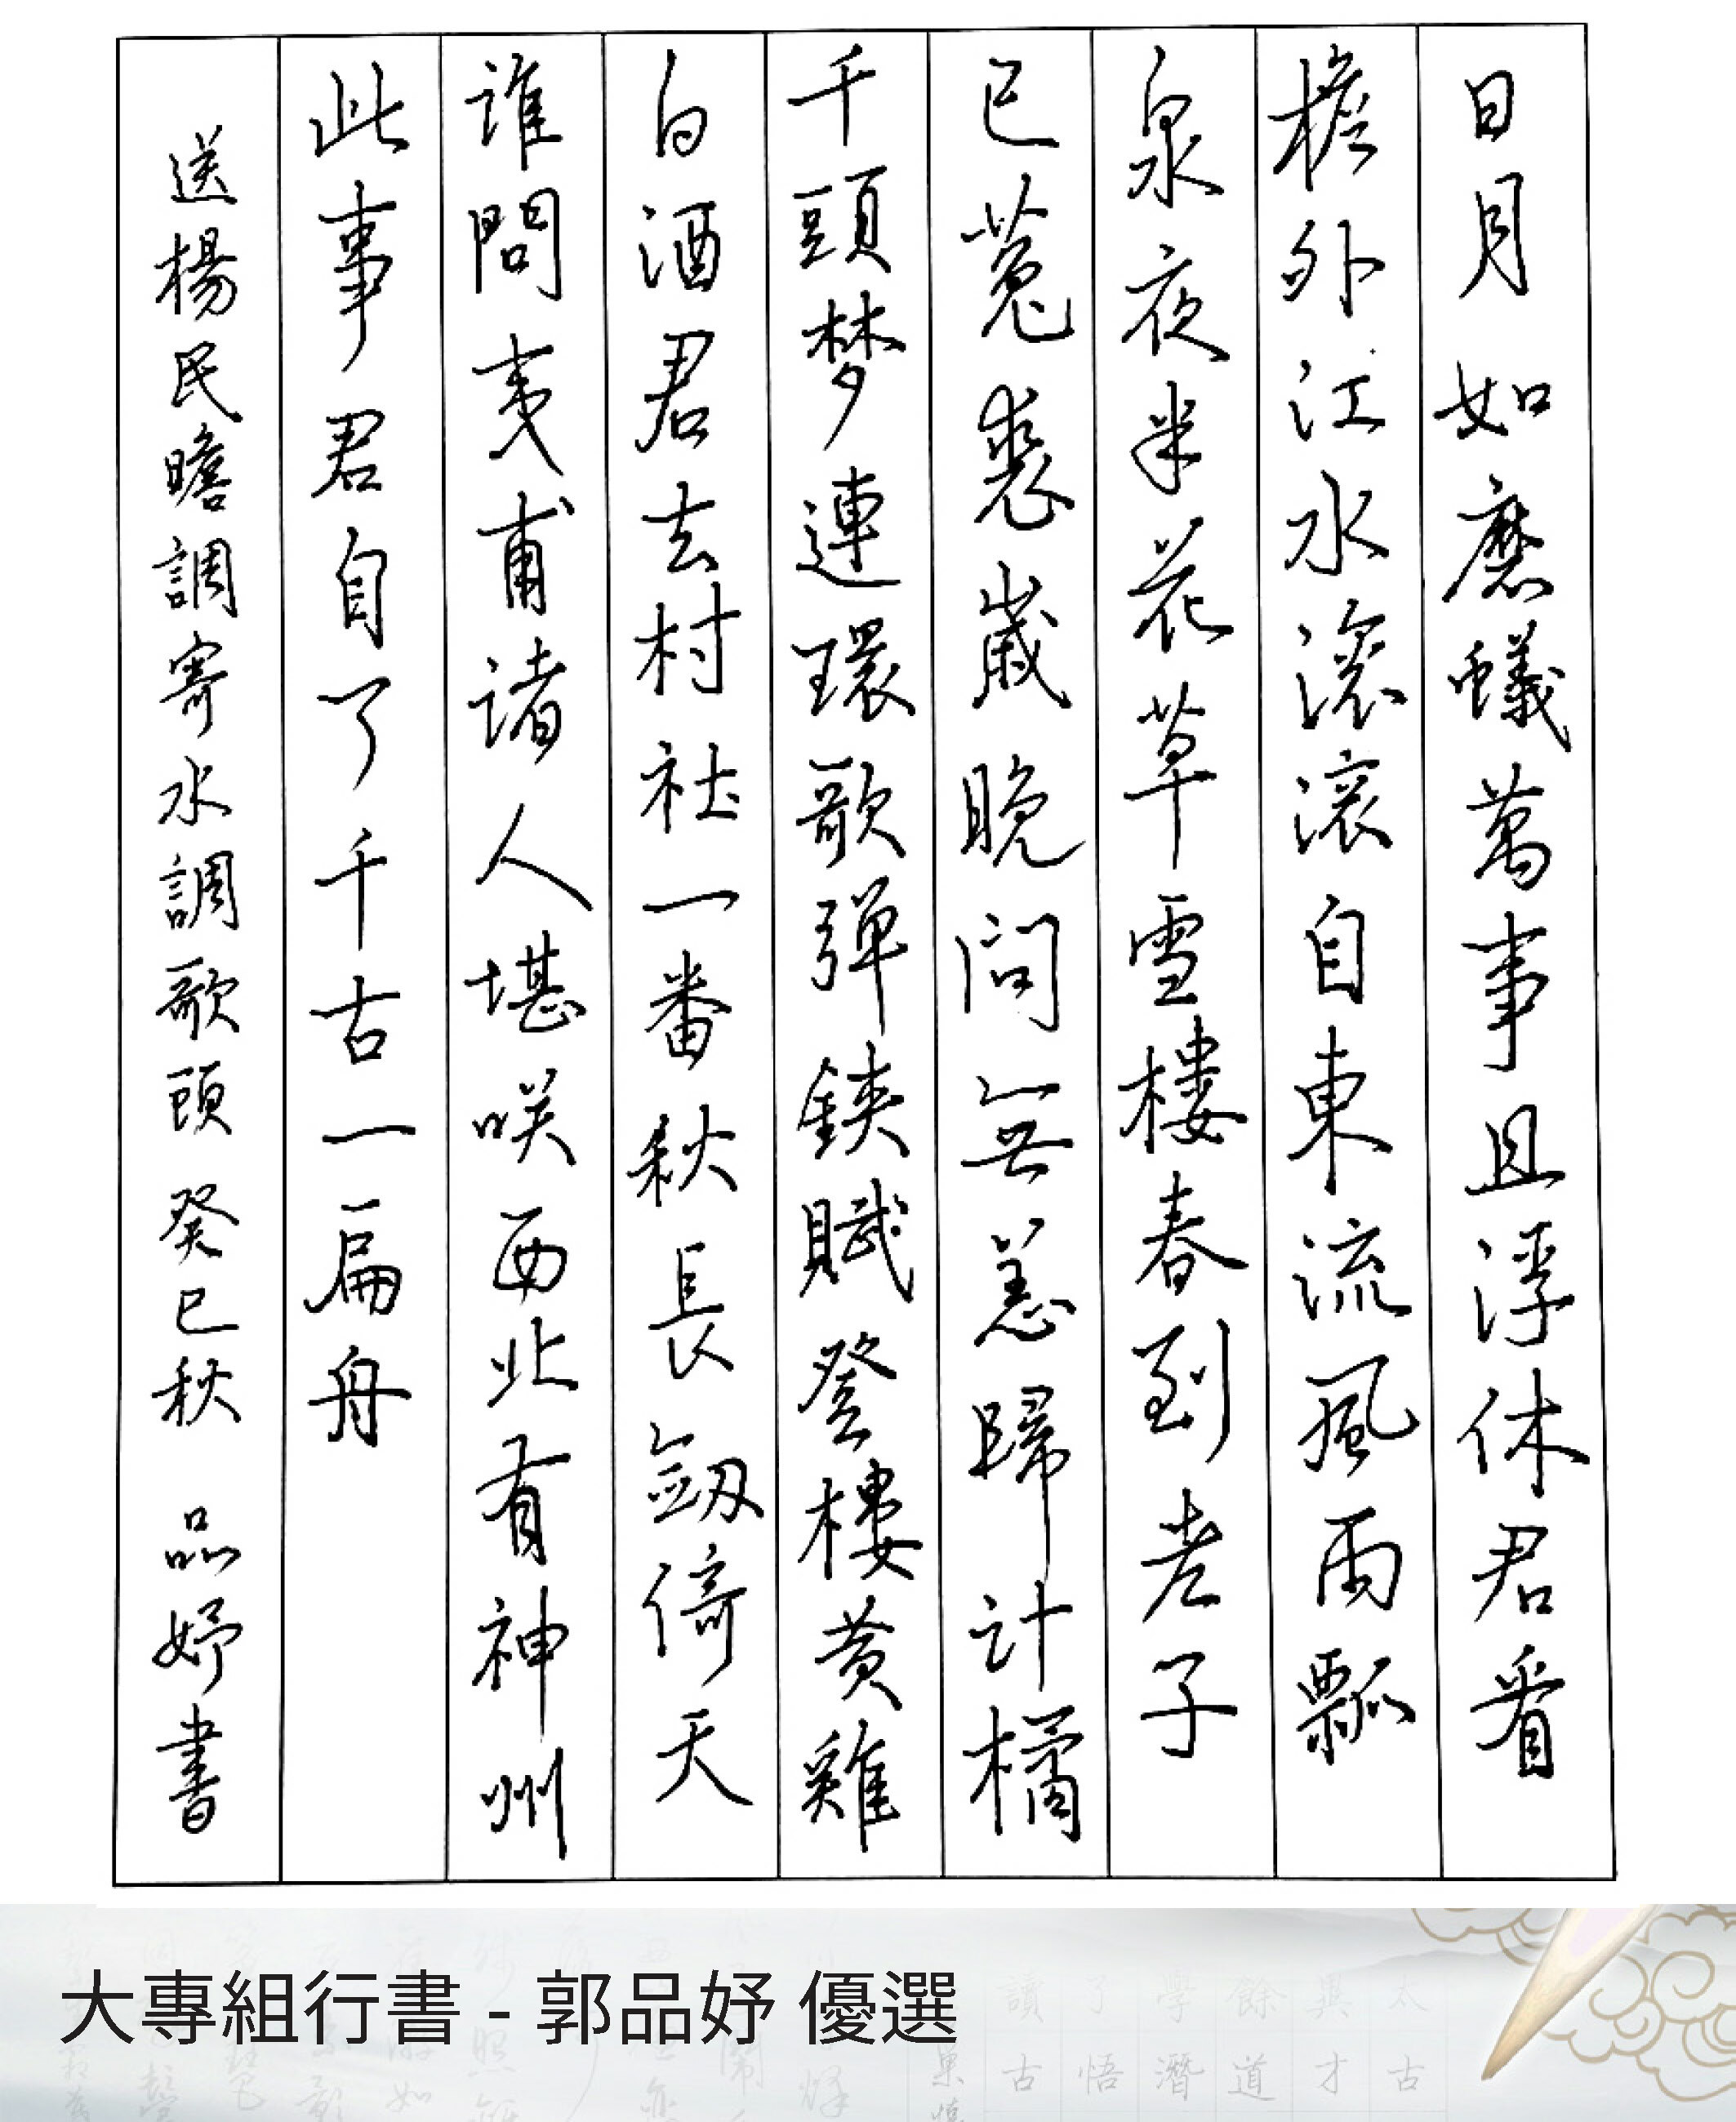 日月如磨蟻萬事且浮休君看
檐外江水滾滾自東流風雨瓢
泉夜半花草雪樓春到老子
已菟裘歲晚問無恙歸計橘
千頭梦連環歌弹鋏賦登樓黄雞
白酒君去村社一番秋長劔倚天
誰問夷甫諸人堪咲西北有神州
此事君自了千古一扁舟
送楊民瞻調寄水調歌頭 癸巳秋 品妤書
大專組行書 - 郭品妤 優選